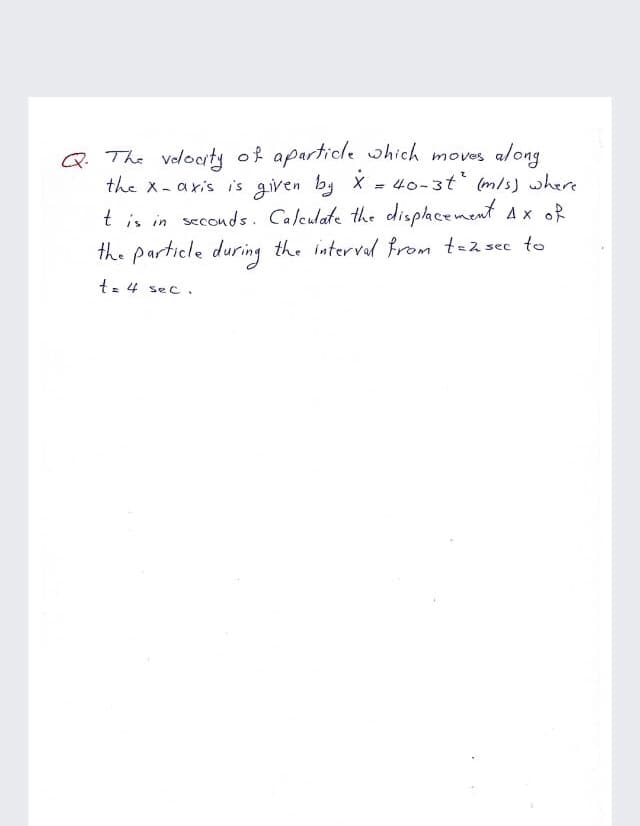 Q. The velocity of aparticle which moves along
the x-axis is given by ẋ = 40-3t² (m/s) where
t is in seconds. Calculate the displacement Δx of
the particle during the interval from t=2 sec to
t= 4 sec.